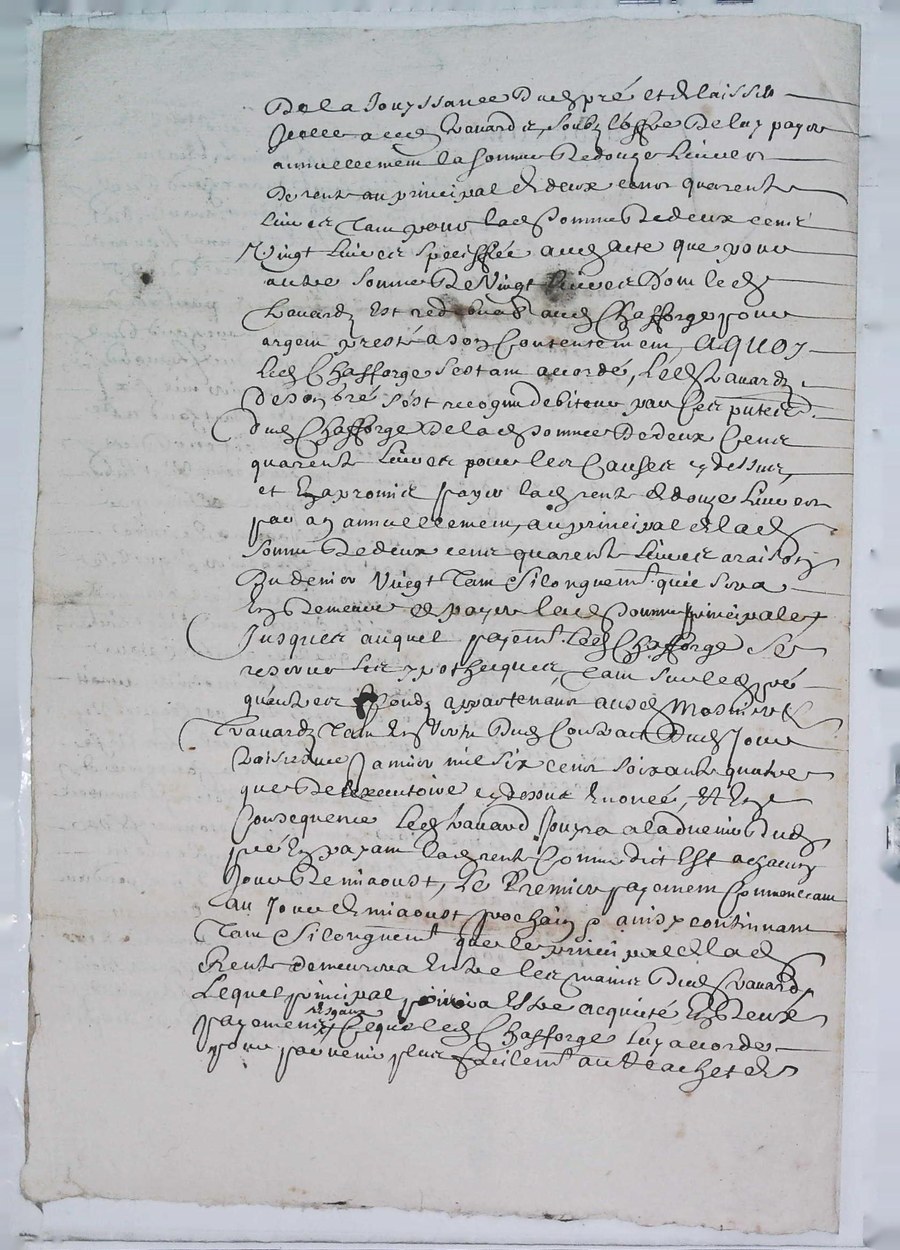 De la Jouyssance dud pré et delaisser
Jcelle aud Evvrard, soubz l'offre de luy payer
annuellement la somme de douze Livres
De rente au principal de deux cens quarente
Livres Tant pour lad somme de deux cens
Vingt Livres speciffiée aud acte que pour
autre somme de Vingt Livres Dont led
est redebvab aud Chafforge pour
argent presté a son Contentement, AQUOY
led Chafforge sestant accordé, Led
De son gré s'est recognu debiteur par Ces putes
dud Chafforge De lad somme De deux Cens
quarente Livres pour les Causes cy dessus,
et En a promis payer lad rente de douze Livres
par an annuellement, au principal de lad
somme De deux cens quarente Livres a raison
Du denier Vingt Tant Si longuemt quil sera
En Demeure de payer lad somme principale
Jusques auquel payemt Led Chafforge se
reserve ses ypotheques, Tant sur led pré
qu'autres fondz appartenans aud
Tant En Vertu dud Contract Dud Jour
Janvier mil six cens soixante quatre
que De l'executoire cy dessus Enoncé, Et En
Consequence Led Jouyra a l'advenir dud
pré En payant lad rente Comme dit Est a chacun
Jour De miaoust, Le Premier payement Commencant
au Jour de miaoust prochain & ainsy continuant
Tant Si longuemt que le principal de lad
Rente demeurera Entre les mains dud
Lequel principal pourra Estre acquité En Deux
payemens esgaux Ce que led Chafforge luy accorde
pour parvenir plus facilemt au Rachet de